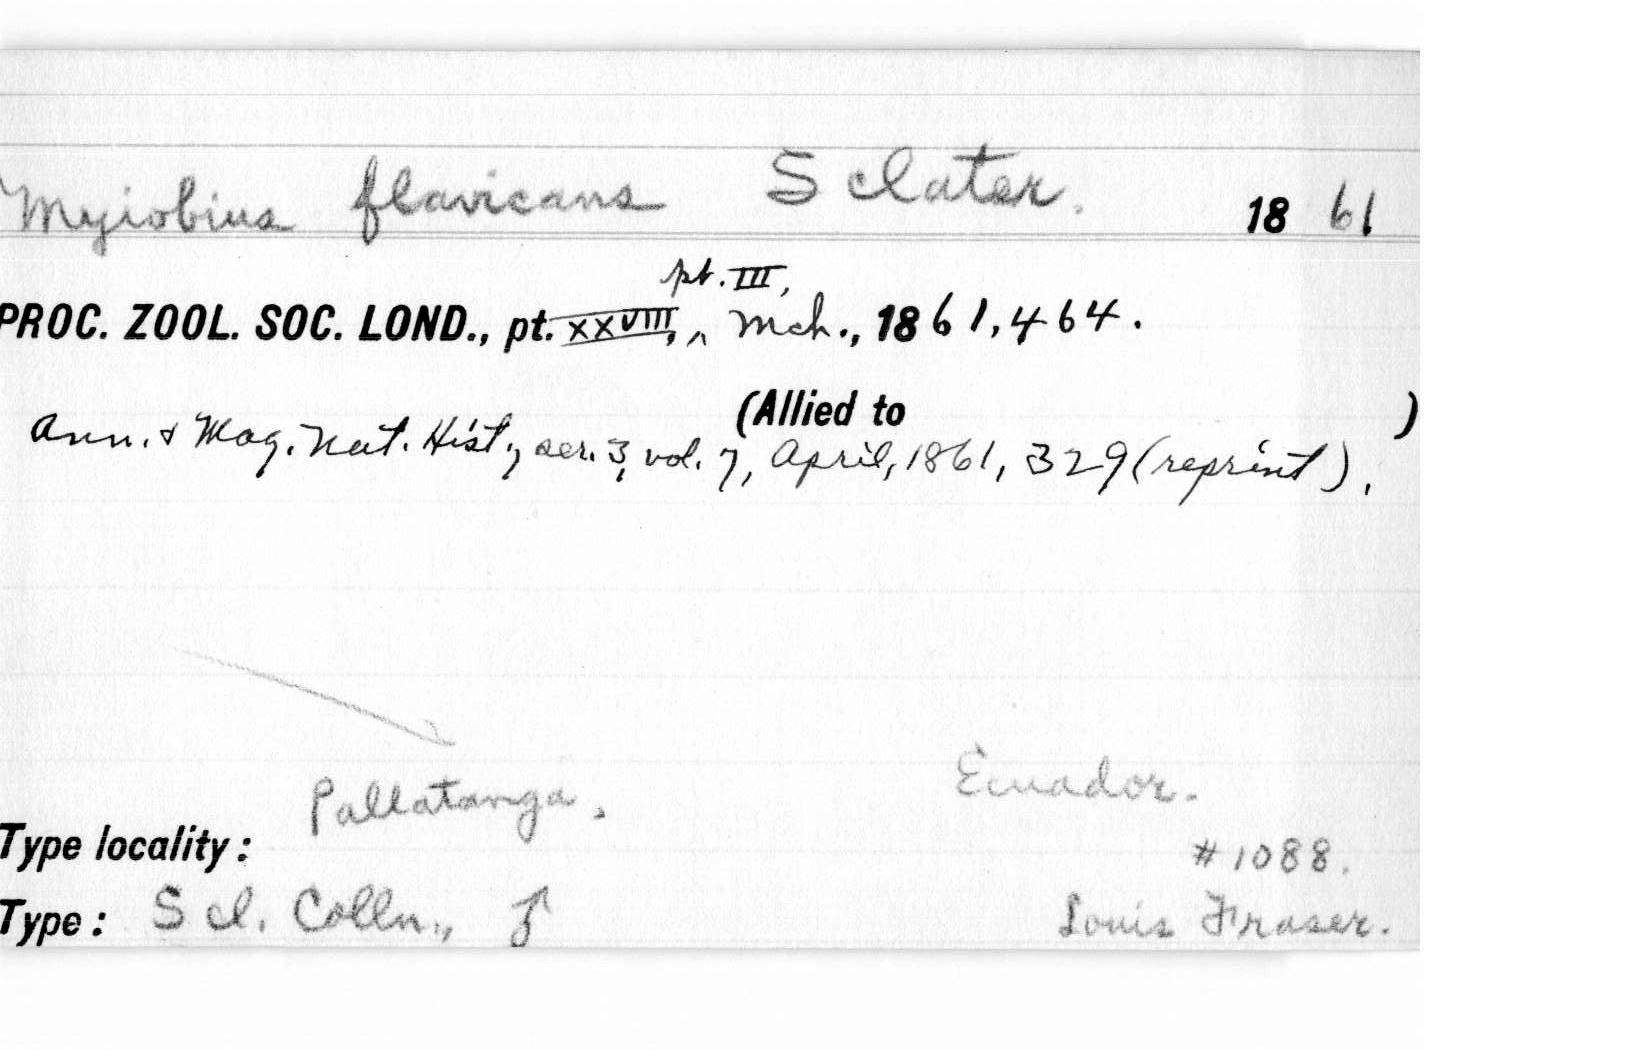 Myiobius flavicans Sclater. 1861
pt. III,
PROC. ZOOL. SOC. LOND., pt. XXVIII, ‸ Mch., 1861, 464.
(Allied to )
Ann. & Mag. Nat. Hist., ser. 3, vol. 7, April, 1861, 329 (reprint).
Pallatanga. Ecuador.
Type locality: #1088.
Type: Scl. Colln., ♂ Louis Fraser.